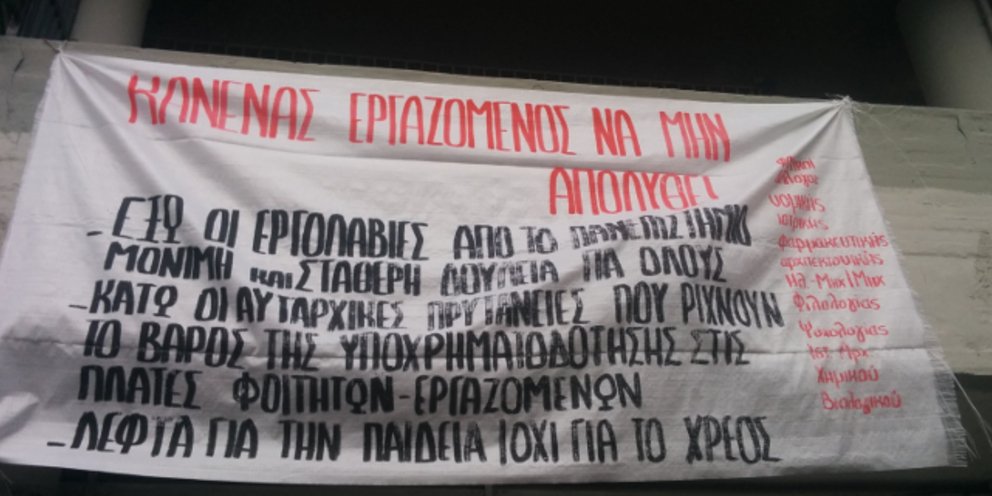 ΚΑΝΕΝΑΣ ΕΡΓΑΖΟΜΕΝΟΣ ΝΑ ΜΗΝ
ΑΠΟΛΥΘΕΙ
- ΕΞΩ ΟΙ ΕΡΓΟΛΑΒΙΕΣ ΑΠΟ ΤΟ ΠΑΝΕΠΙΣΤΗΜΙΟ
ΜΟΝΙΜΗ και ΣΤΑΘΕΡΗ ΔΟΥΛΕΙΑ ΓΙΑ ΟΛΟΥΣ
- ΚΑΤΩ ΟΙ ΑΥΤΑΡΧΙΚΕΣ ΠΡΥΤΑΝΕΙΕΣ ΠΟΥ ΡΙΧΝΟΥΝ
ΤΟ ΒΑΡΟΣ ΤΗΣ ΥΠΟΧΡΗΜΑΤΟΔΟΤΗΣΗΣ ΣΤΙΣ
ΠΛΑΤΕΣ ΦΟΙΤΗΤΩΝ-ΕΡΓΑΖΟΜΕΝΩΝ
- ΛΕΦΤΑ ΓΙΑ ΤΗΝ ΠΑΙΔΕΙΑ ΙΟΧΙ ΓΙΑ ΤΟ ΧΡΕΟΣ
νομικής
ιατρικής
φαρμακευτικής
αρχιτεκτονικής
Ηλ. Μηχ/Μηχ
Φιλολογίας
Ψυχολογίας
Ιστ. Αρχ.
Χημικού
Βιολογικού